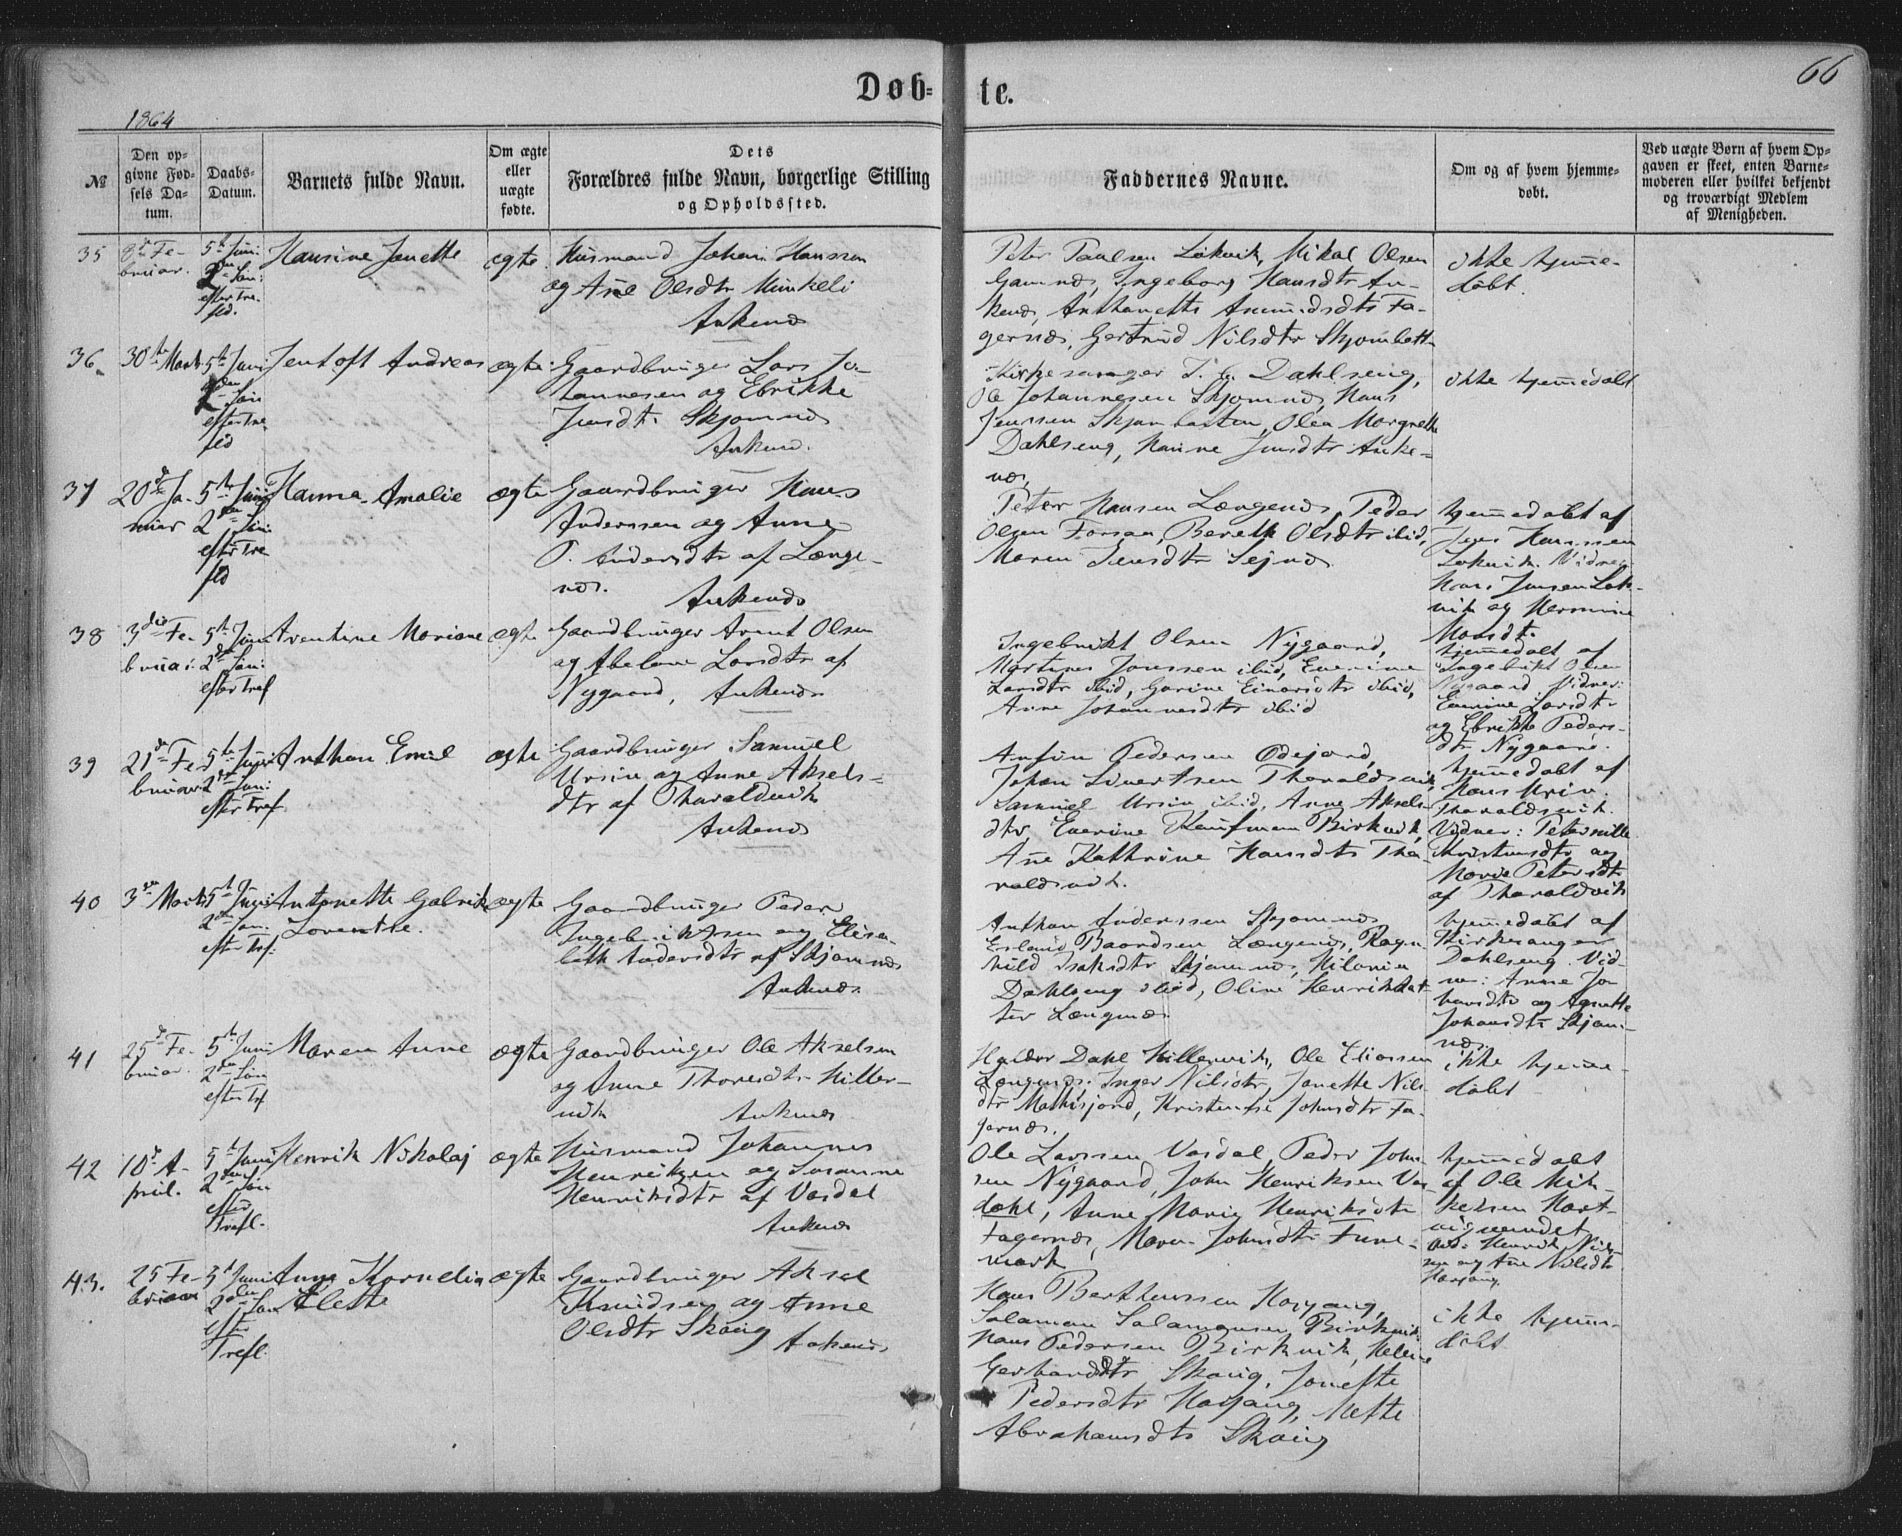 Døb-
te.
66
1864
№
Den op-
givne Fød-
sels Da-
tum.
Daabs-
Datum.
Barnets fulde Navn.
Om ægte
eller
uægte
fødte.
Dets
Forældres fulde Navn, borgerlige Stilling
og Opholdssted.
Faddernes Navne.
Om og af hvem hjemme-
døbt.
Ved uægte Børn af hvem Op-
gaven er skeet, enten Barne-
moderen eller hvilket bekjendt
og troværdigt Medlem
af Menigheden.
35
8de Fe-
bruar.
5te Juni
2den Søn:
efter Tre-
fld.
Hansine Janette
ægte
Husmand Johan Hanssen
og Ane Olsdtr
Ankenæs
Peter Paulsen Lakvik, Mikal Olsen
Ingeborg Hansdtr An-
kenæs, Anthanette Amundsdtr Fa-
gernæs, Gertrud Nilsdtr Skjombotn
ikke hjemme-
døbt.
36
30te Marts
5te Juni
2den Søn
efter Tre
fld
Jentoft Andreas
ægte
Gaardbruger Lars Jo-
hannesen og Ebrikke
Jensdtr Skjomnæs
Ankenæs.
Kirkesanger Dahlseng,
Ole Johannesen Skjomnæs, Hans
Jenssen Skjombotten, Olea Margrethe
Dahlseng, Hanne Jensdtr Anke-
næs,
ikke hjemmedøbt
37
20de Ja-
nuar
5te Juni
2den Søn:
efter Tre
fld
Hanna Amalie
ægte
Gaardbruger Hans
Anderssen og Anne
P. Andersdtr af Længe-
næs.
Ankenæs
Peter Hansen Længenæs, Peder
Olsen Forsaa, Bereth Olsdtr ibid,
Maren Jensdtr Sejnæs
hjemmedøbt af
Jens Hanssen
Lakvik. Vidner
Hans Jensen Lak-
vik og Hermine
Hansdtr.
38
3die Fe-
bruar.
5te Juni
2den Søn:
efter Tref
Arentine Mariane
ægte
Gaardbruger Arent Olsen
og Abelone Larsdtr af
Nygaard, Ankenæs
Ingebrikt Olsen Nygaard,
Martines Jonssen ibid, Everine
Larsdtr ibid, Garine Einarsdtr ibid,
Anne Johannesdtr ibid
hjemmedøbt af
Ingebrikt Olsen
Nygaard Vidner:
Everine Larsdtr
og Ebrikke Peders-
dtr Nygaard.
39
21de Fe-
bruar
5te Juni
2den Søn:
efter Tref
Anthon Emil
ægte
Gaardbruger Samuel
Ursin og Anne Aksels-
dtr af Tharaldsvik
Ankenæs
Anton Pedersen
Johan Sivertsen Tharaldsvik,
Samuel Ursin ibid, Anne Aksels-
dtr, Everine Kaufman Birkvik,
Ane Kathrine Hansdtr Tha-
raldsvik.
hjemmedøbt af
Hans Ursin
Tharaldsvik.
Vidner: Peternille
Kristensdtr og
Petersdtr
af Tharaldsvik
40
3die Marts
5te Juni
2den Søn:
efter Tref:
Antonette Gabrikke
Lorentse.
ægte
Gaardbruger Peder
Ingebriktsen og Elisa-
beth Andersdtr af Skjomnæs
Ankenæs.
Anthon Anderssen Skjomnæs
Erland Baardsen Længenæs, Ragn-
hild Isaksdtr Skjomnæs, Hilaria
Dahlseng ibid, Oline Henriksdat-
ter Længenæs
hjemmedøbt af
Kirkesanger
Dahlseng. Vid-
ner: Anne Jo
hansdtr og Agnethe
Johansdtr Skjom-
næs.
41
25de Fe-
bruar.
5te Juni
2den Søn
efter Tref
Maren Anne
ægte
Gaardbruger Ole Akselsen
og Anne Thoresdtr Hiller-
vik Ankenæs
Haldor Dahl Hillervik, Ole Eliassen
Længenæs. Inger Nilsdtr, Janette Nils-
dtr Mattisjord, Kristense Johnsdtr Fa-
gernæs.
ikke hjemme-
døbt
42
10de A-
pril.
5te Juni
2den Søn
efter
Trefl.
Henrik Nikolaj
ægte
Husmand Johannes
Henriksen og Susanne
Henriksdtr af Vasdal
Ankenæs
Ole Larssen Vasdal, Peder John-
sen Nygaard, John Henriksen Vas-
dahl, Anne Marie Henriksdtr
Fagernæs, Maren Johnsdtr Fine-
mark
hjemmedøbt
af Ole Mik-
kelsen Hart-
vig
og Ane Nilsdtr
Harjang
43.
25 Fe-
bruar
5te Juni
2den Søn
efter
Trefl.
Anna Kornelia
Alette
ægte
Gaardbruger Aksel
Knudsen og Anne
Olsdtr Skoug
Ankenæs
Hans Berthenssen Harjang,
Salamon Salamonsen Birkvik
Hans Pedersen Birkvik, Helene
Gerhardsdtr Skoug, Janette
Pedersdtr Harjang, Mette
Abrahamsdtr Skoug
ikke hjemme-
døbt